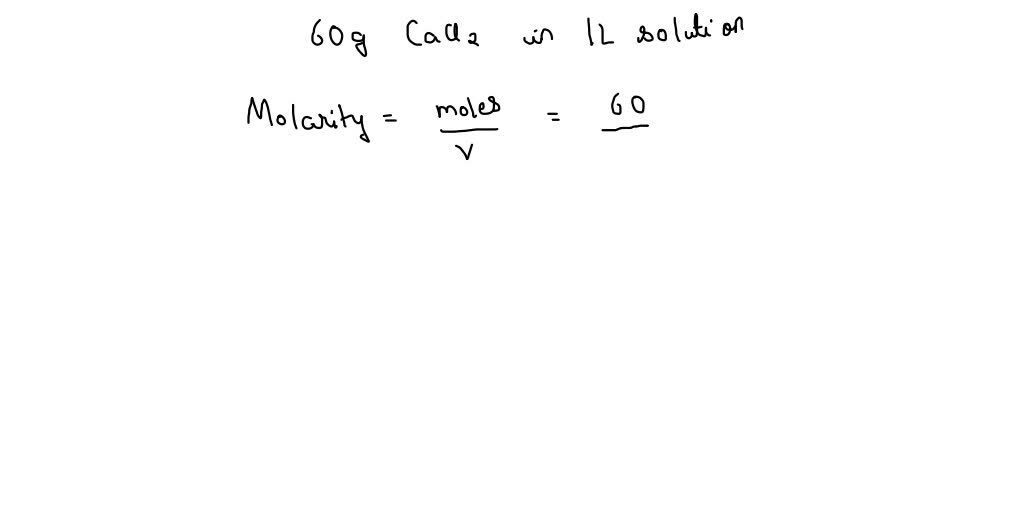 60g CaCl2 in 1L solution
Molarity = moles/V = 60